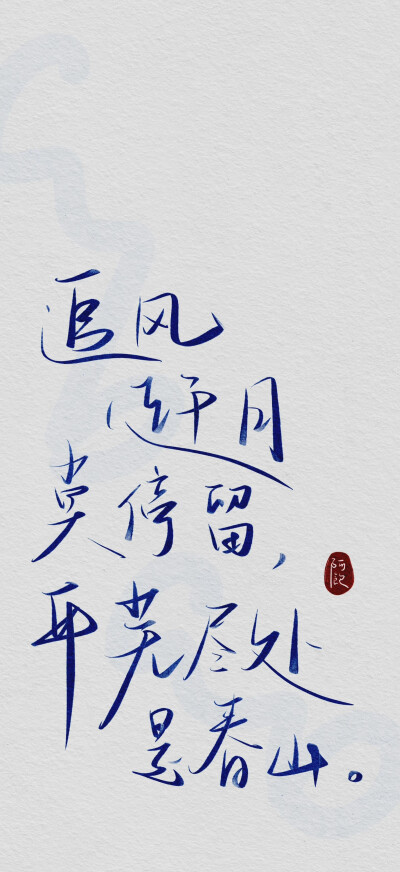 追风
赶月
莫停留，
平芜尽处
是春山。